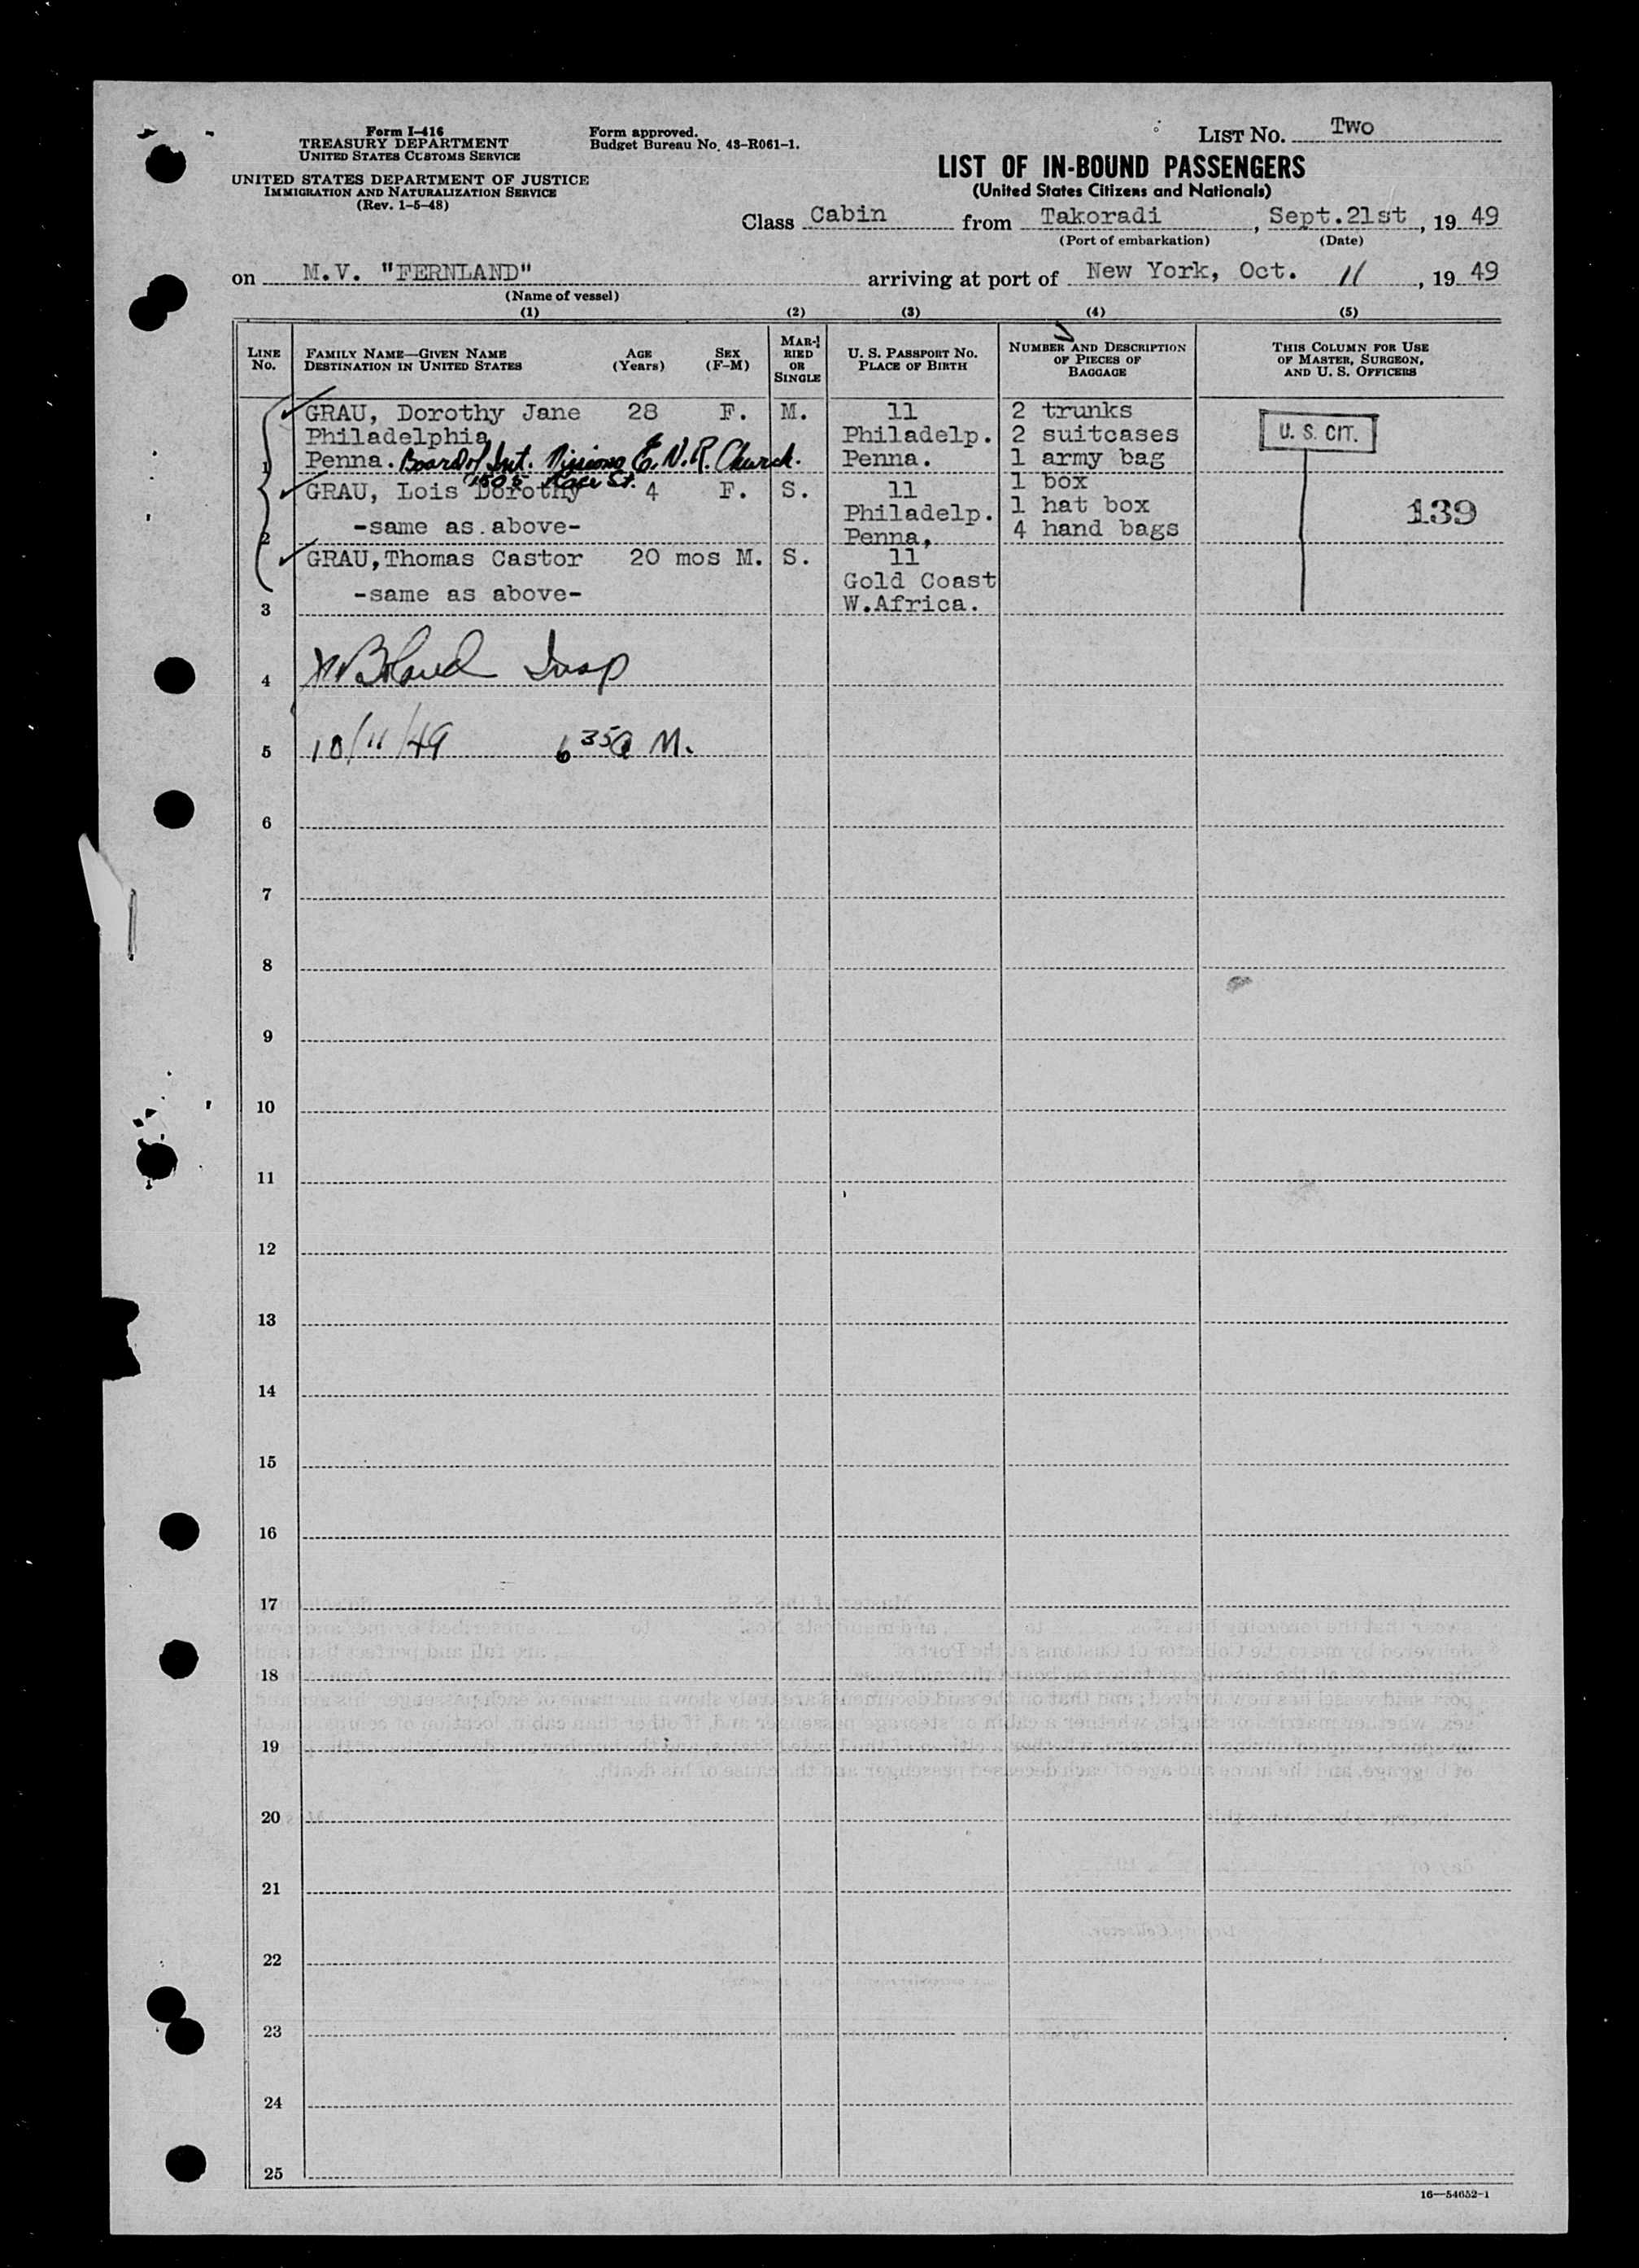 Form I-416
TREASURY DEPARTMENT
UNITED STATES CUSTOMS SERVICE
UNITED STATES DEPARTMENT OF JUSTICE
IMMIGRATION AND NATURALIZATION SERVICE
(Rev. 1-5-48)
Form approved.
Budget Bureau No. 43-R061-1.
LIST NO. Two
LIST OF IN-BOUND PASSENGERS
(United States Citizens and Nationals)
Class Cabin from Takoradi, Sept.21st, 19 49
(Port of embarkation) (Date)
on M.V. "FERNLAND" arriving at port of New York, Oct. 11, 19 49
(Name of vessel)
(1) (2) (3) (4) (5)
LINE NO. FAMILY NAME—GIVEN NAME DESTINATION IN UNITED STATES AGE (Years) SEX (F-M) MARRIED OR SINGLE U. S. PASSPORT NO. PLACE OF BIRTH NUMBER AND DESCRIPTION OF PIECES OF BAGGAGE THIS COLUMN FOR USE OF MASTER, SURGEON, AND U. S. OFFICERS
GRAU, Dorothy Jane 28 F. M. 11 2 trunks
Philadelphia Philadelp. 2 suitcases U. S. CIT.
1 Penna. Board of Int. Missions E. & R. Church. Penna. 1 army bag
1505 Race St. 1 box
GRAU, Lois Dorothy 4 F. S. 11
Philadelp. 1 hat box 139
-same as above- 4 hand bags
2 Penna,
GRAU,Thomas Castor 20 mos M. S. 11
Gold Coast
-same as above-
3 W.Africa.
4 Insp
5 10/11/49 6 35 a M.
6
7
8
9
10
11
12
13
14
15
16
17
18
19
20
21
22
23
24
25
16—54652-1